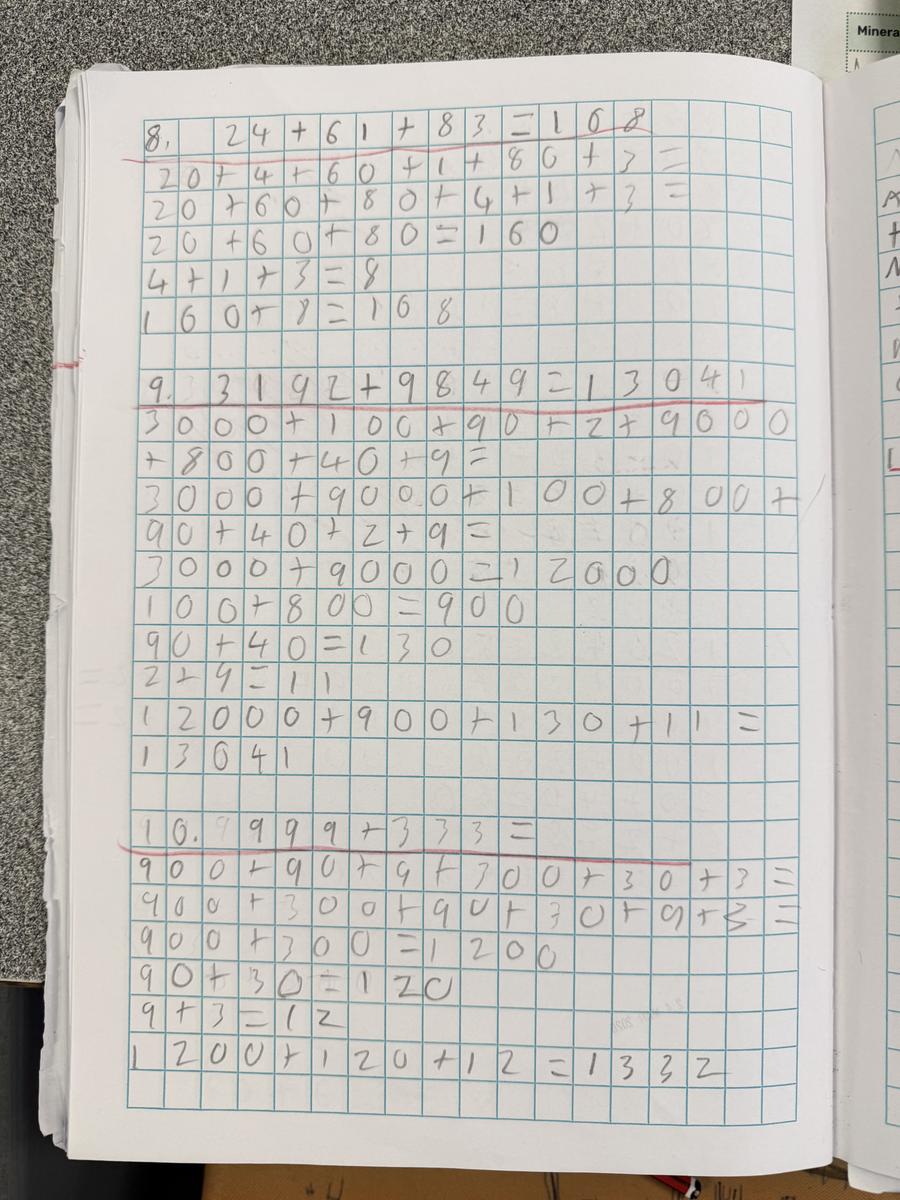 Minera
8. 24+61+83=168
20+4+60+1+80+3=
20+60+80+4+1+3=
20+60+80=160
4+1+3=8
160+8=168
9. 3192+9849=13041
3000+100+90+2+9000
+800+40+9=
3000+9000+100+800+
90+40+2+9=
3000+9000=12000
100+800=900
90+40=130
2+9=11
12000+900+130+11=
13041
10. 999+333=
900+90+9+300+30+3=
900+300+90+30+9+3=
900+300=1200
90+30=120
9+3=12
1200+120+12=1332